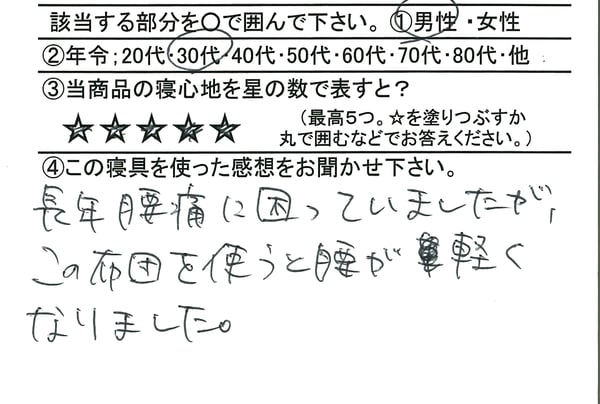 該当する部分を〇で囲んで下さい。①男性・女性
②年令；20代・30代・40代・50代・60代・70代・80代・他
③当商品の寝心地を星の数で表すと？
☆☆☆☆☆ （最高５つ。☆を塗りつぶすか
丸で囲むなどでお答えください。）
④この寝具を使った感想をお聞かせ下さい。
長年腰痛に困っていましたが、
この布団を使うと腰が軽く
なりました。